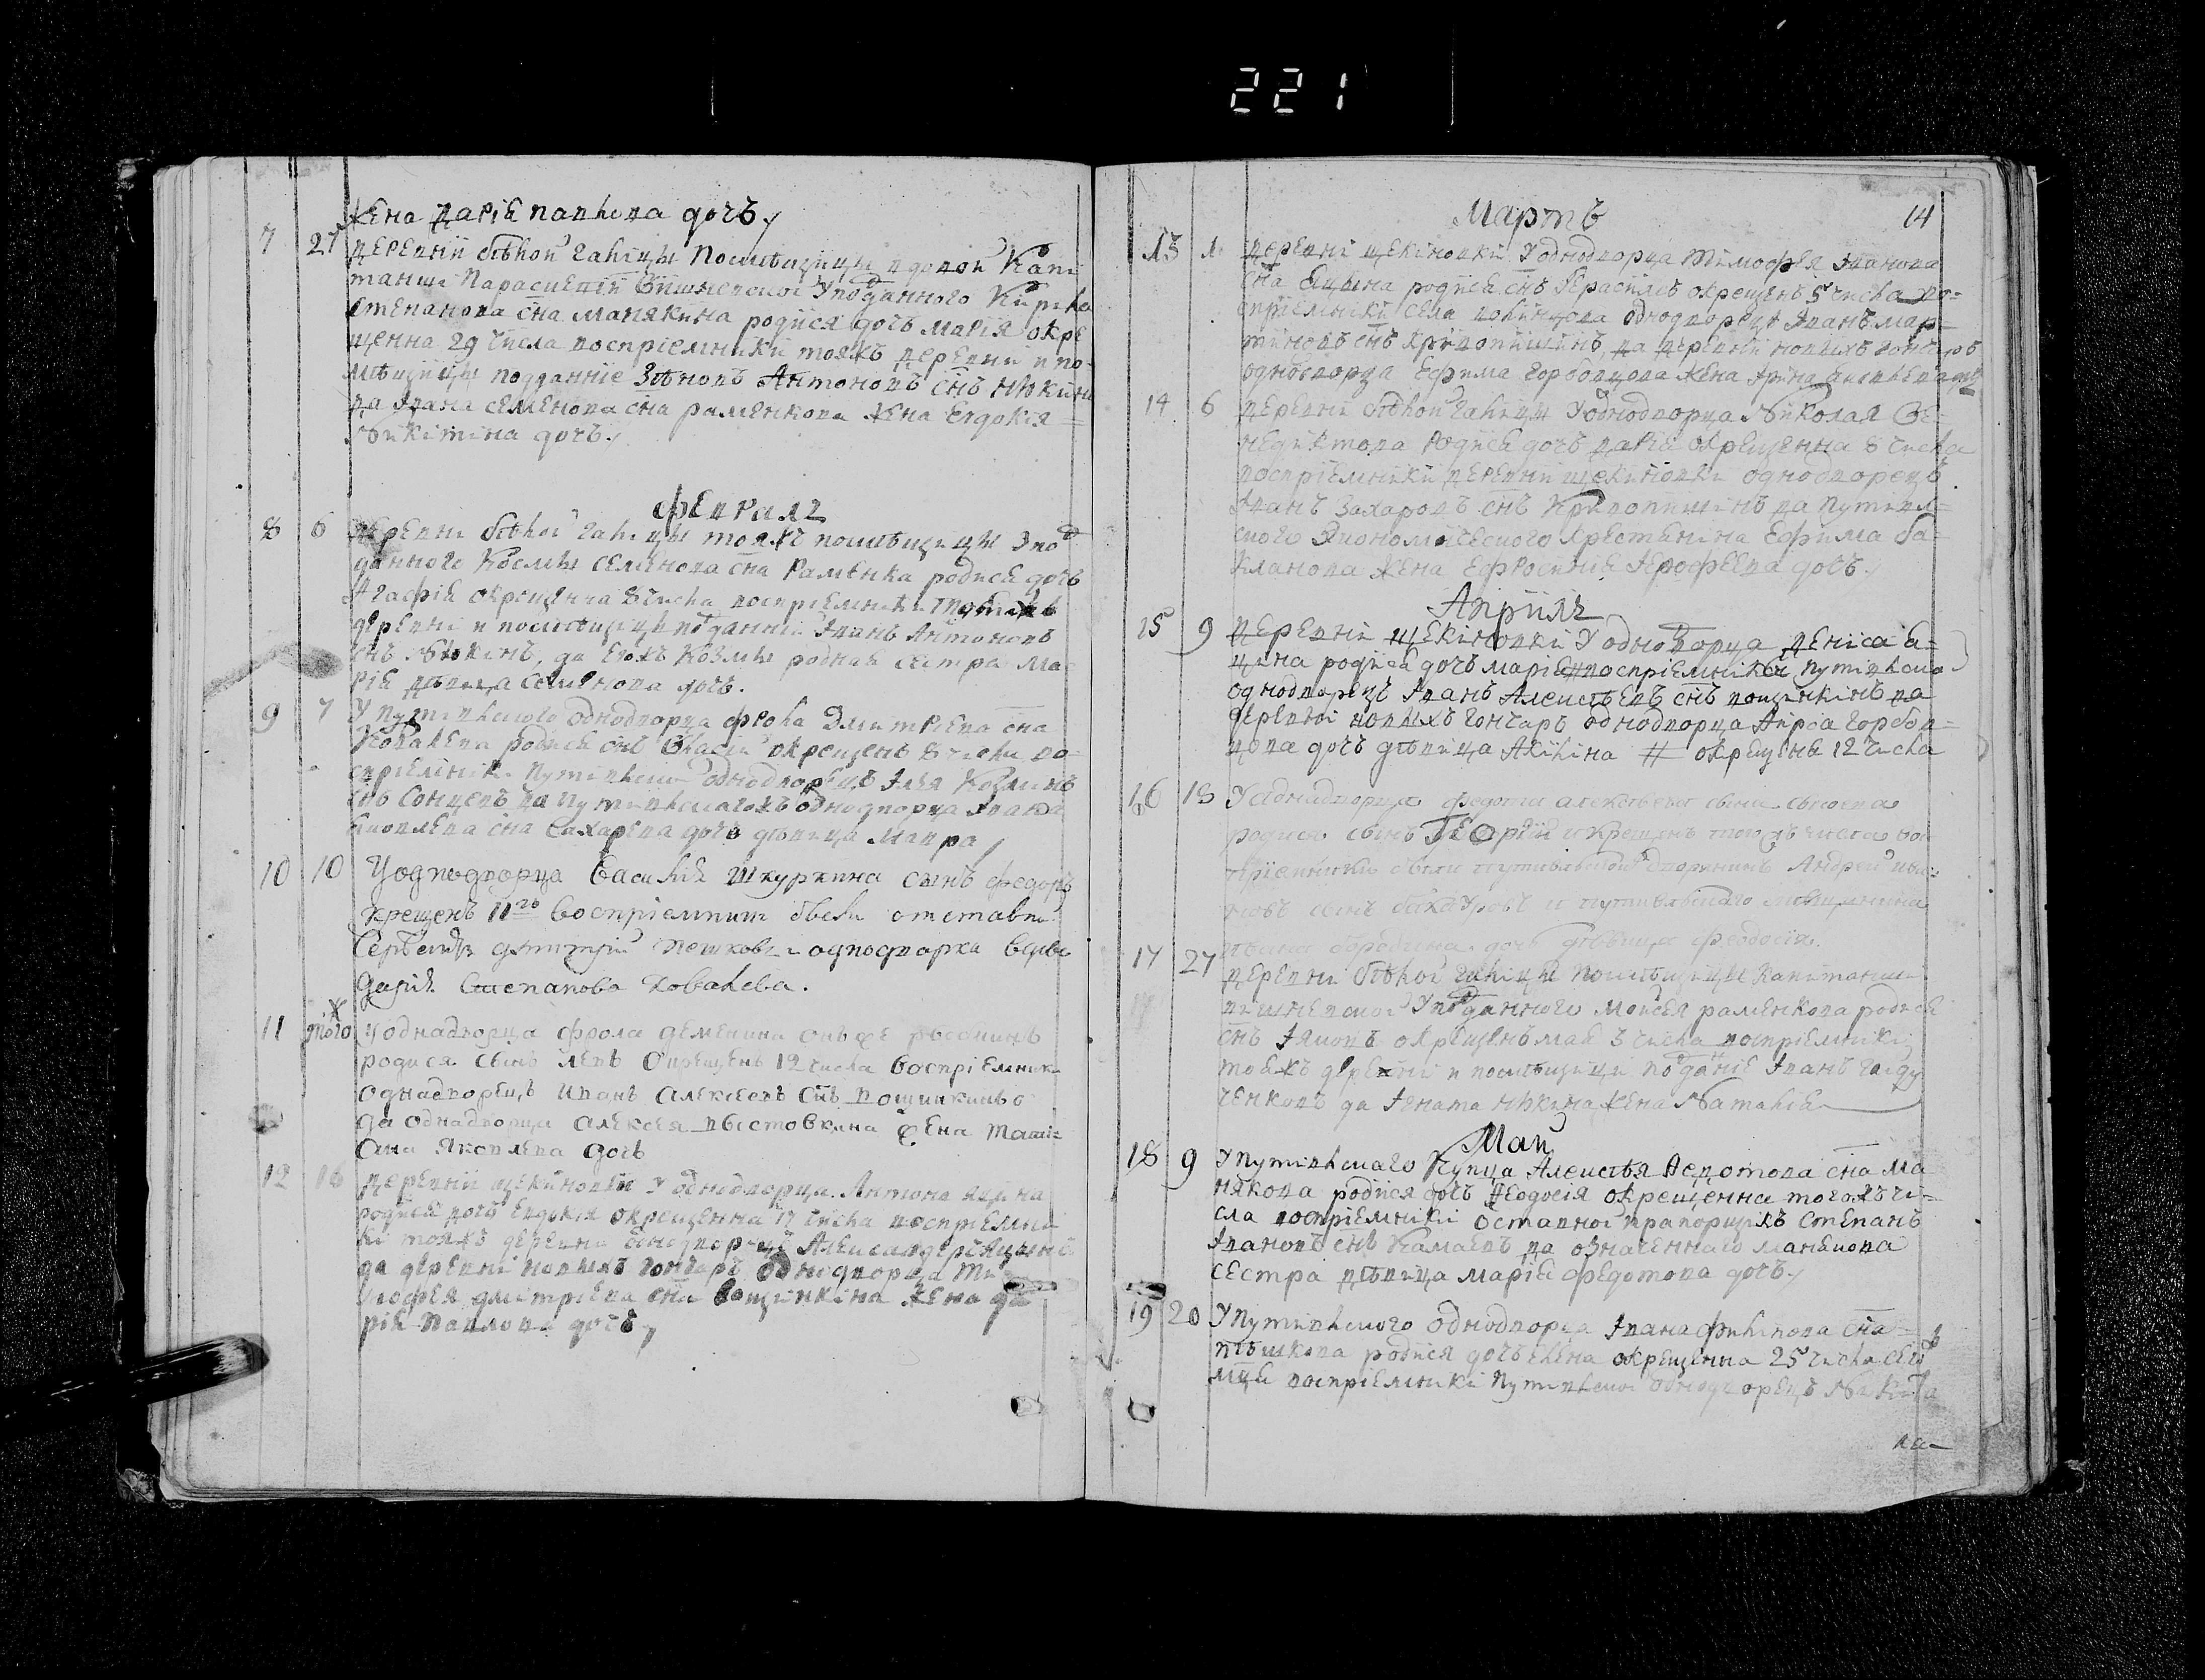 221
жена дарія павлова дочъ
7 27 деревни бѣлой галицы помѣщицы вдовой капи
танши Парасцевіи Вишневской У подданного Кирила
степанова сна манякина родися дочъ марія окре
щенна 29 числа воспріемники тояжъ деревни и по
мѣщицы подданніе Зѣновъ Антоновъ снъ
да Ивана семенова сна раменкова жена Евдокія
Никитина дочъ
Февраль
8 6 деревни бѣлой галицы тояжъ помѣщицы У под
данного Космы семенова сна Раменка родися дочъ
Агафія окрещенна 8 числа воспріемники
деревни и помѣщицы подданній Іванъ Антоновъ
снъ да евожъ Козмы родная сестра Ма
рія дѣвица Семенова дочъ.
9 7 У путивлского однодворца фрола Дмитріева сна
Ковалева родися снъ Власій окрещенъ 8 числа во
спріемники Путивлской однодворецъ Илля Козминъ
снъ Сонцевъ да Путивлскагожъ однодворца Ивана
Яковлева сна Захарева дочъ дѣвица Мавра
10 10 У однодворца Василія Шкуркина сынъ федоръ
крещенъ 11го воспріемники были отставно
Сержантъ дмитрій Пешковъ и однодворка вдова
Дарія Степанова Ковалева.
11 того ж У однадворца фрола деменина
родися сынъ левъ Окрещенъ 12 числа воспріемники
однадворецъ Иванъ алексеевъ снъ вощинкинъ
да однадворца алексея выставкина жена Тати
Ана Яковлева дочъ
12 16 деревни щекиновки У однодворца Антона яцина
родися дочъ Евдокія окрещенна 17 числа воспріемни
ки тояжъ деревни однодворецъ Александеръ яцинъ
да деревни новыхъ гончаръ однодворца Ти
мофея дмитріева сна вощинкина жена да
рія Павлова дочъ
Мартъ 14
13 1 деревни щекиновки У однодворца Тимофея Іванова
сна Яцына родися снъ Герасимъ окрещенъ 5 числа во=
спріемники села волинцова однодворецъ Іванъ мар=
тиновъ снъ Кривопишинъ, да деревни новыхъ гончаръ
однодворца Ефима горбовцова жена Ірина
14 6 деревни бѣлой галицы У однодворца Николая Ве=
недиктова Родися дочъ дарія окрещенна 8 числа
воспріемники деревни щекиновки однодворецъ
Іванъ Захаровъ снъ Кривопишинъ да путивл=
ского Экономическаго крестянина Ефима ба=
кланова жена Ефросинія Ерофеева дочъ
Апріиль
15 9 деревни щекиновки У однодворца дениса я=
цина родися дочъ марія воспріемники путивлско
однодворецъ Іванъ Алексѣевъ снъ вощинкинъ да
деревни новыхъ гончаръ однодворца Карпа горбов=
цова дочъ дѣвица Акилина # окрещена 12 числа
16 18 У однадворца федота алексѣева сына
родися сынъ ГЕОргій и крещенъ тогожъ числа вос
пріемники были путивльской дворянинъ Андрей ива=
новъ сынъ и путивльскаго мѣщанина
дочь дѣвица феодосія.
17 27 деревни бѣлой галицы помѣщицы капитанши
вишневской У подданного Мойсея раменкова родися
снъ Іяковъ окрещенъ мая 3 числа воспріемники
тояжъ деревни и помѣщицы подданіе Іванъ гайду
ченковъ да Ігната жена Наталія
Май
18 9 У путивлскаго Купца Алексѣя Федотова сна ма
някова родися дочъ Феодосія окрещенна тогожъ чи=
сла воспріемники оставной прапорщикъ Степанъ
Івановъ снъ Камаевъ да означеннаго манякова
сестра дѣвица марія федотова дочъ
19 20 У путивлского однодворца Івана филипова сна
пѣшкова родися дочъ елена окрещенна 25 числа сего
мца воспріемники путивлской однодворецъ Никита